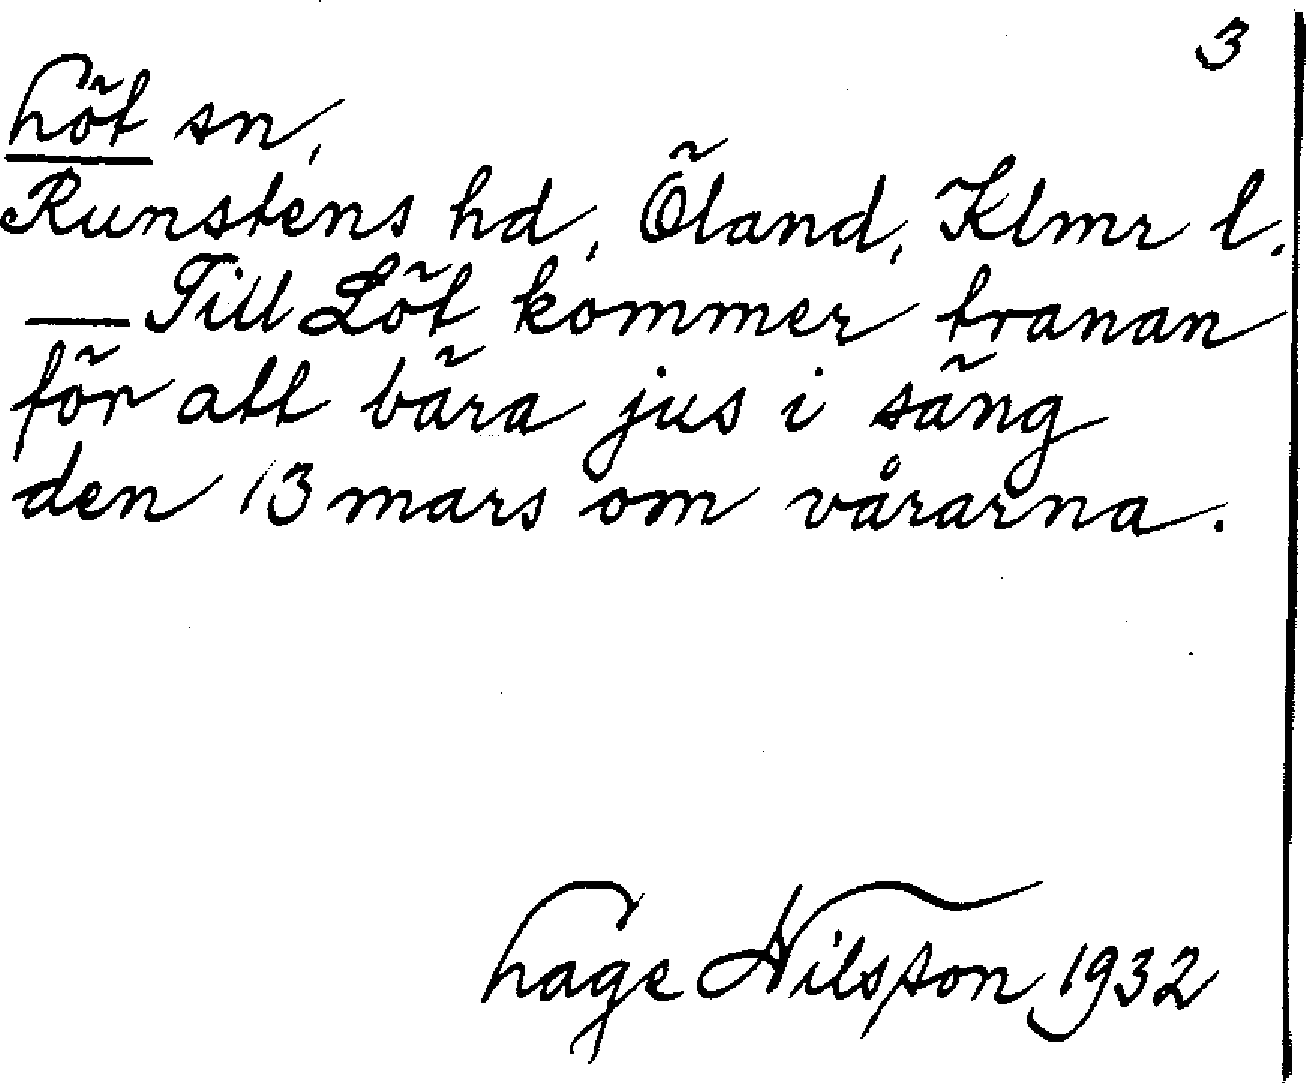 3
Löt sn,
Runstens hd, Öland, Klmr l.
— Till Löt kommer tranan
för att bära jus i säng
den 13 mars om vårarna.
Lage Nilsson 1932